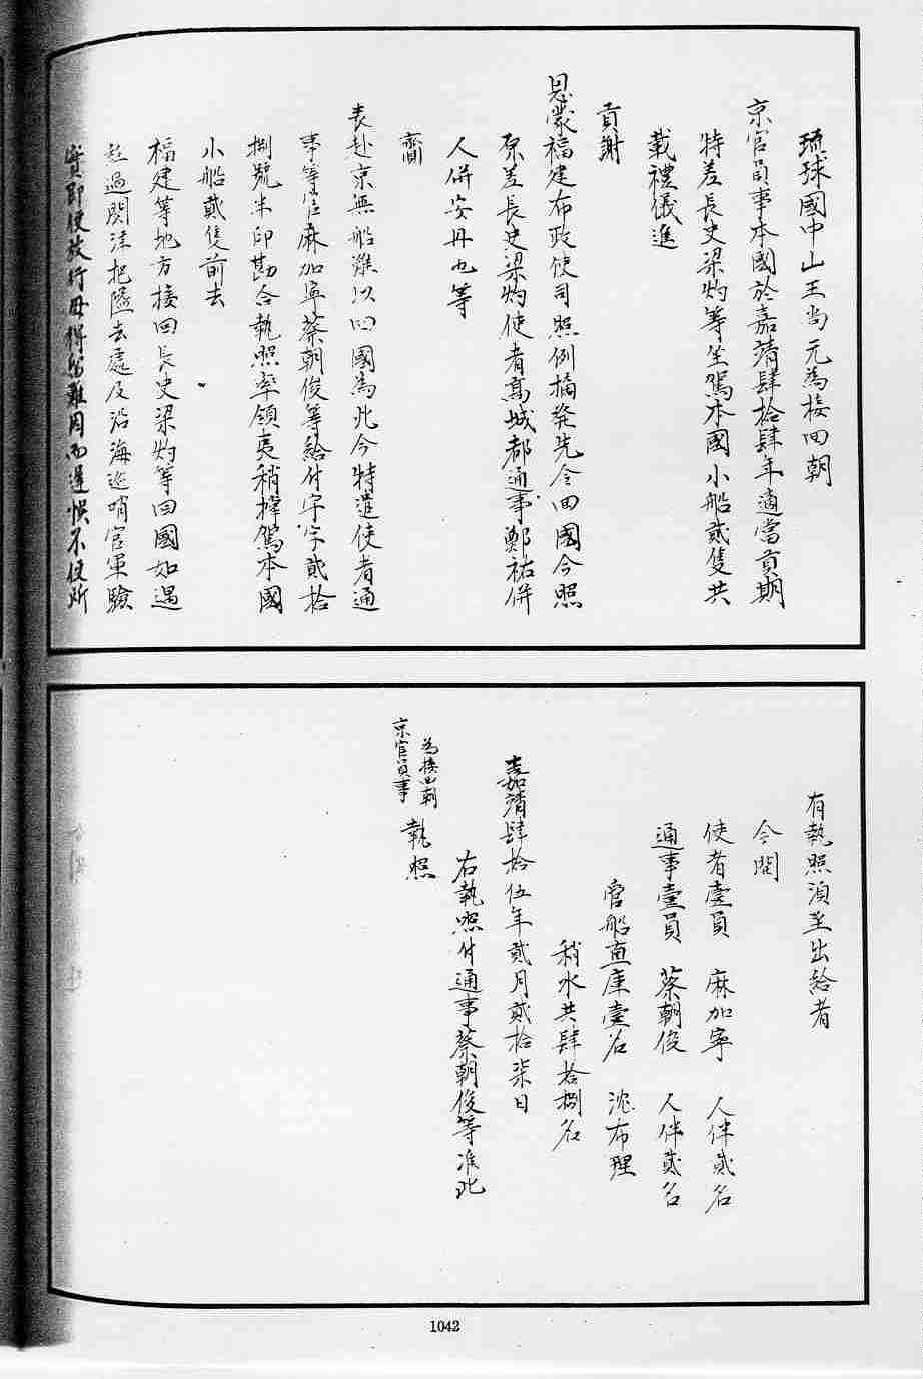 琉球國中山王尚元為接回朝
京官員事本國於嘉靖肆拾肆年適當貢期
特差長史梁灼等坐駕本國小船貳隻共
載禮儀進
貢謝
恩蒙福建布政使司照例摘發先令回國今照
原差長史梁灼使者髙城都通事鄭祐併
人併安丹也等
齎
表赴京無船難以回國為此今特遣使者通
事等官麻加寧蔡朝俊等給付字字貳拾
捌號半印勘合執照率領夷稍撑駕本國
小船貳隻前去
福建等地方接回長史梁灼等回國如遇
經過関津把隘去處及沿海巡哨官軍驗
實即便放行毋得留難因而遲悞不便所
有執照湏至出給者
今開
使者壹員 麻加寧 人伴貳名
通事壹員 蔡朝俊 人伴貳名
管船直庫壹名 沈布理
稍水共肆拾捌名
嘉靖肆拾伍年貳月貳拾柒日
右執照付通事蔡朝俊等准此
為接回朝
京官員事
執照
1042